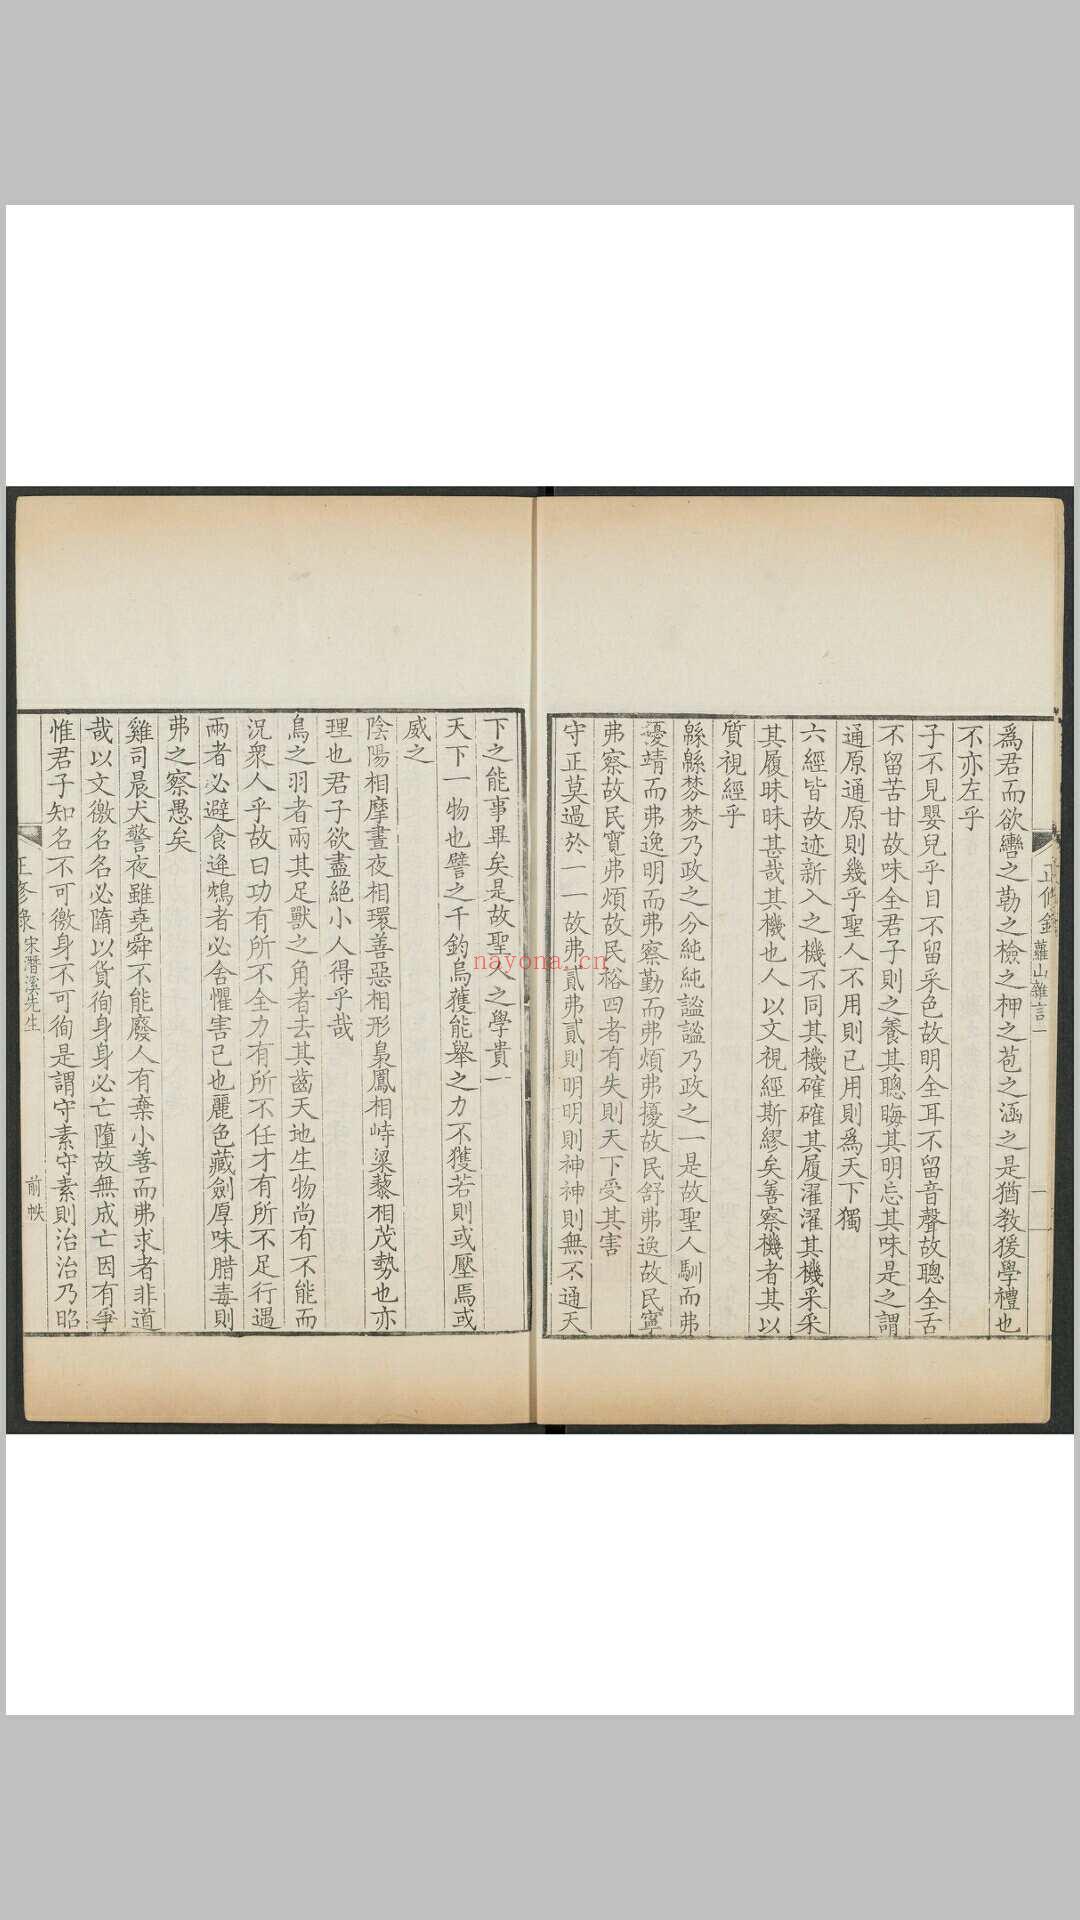 正修錄 蘿山雜言 一
爲君而欲轡之勒之檢之柙之苞之涵之是猶教猨學禮也
不亦左乎
子不見嬰兒乎目不留采色故明全耳不留音聲故聰全舌
不留苦甘故味全君子則之養其聰晦其明忘其味是之謂
通原通原則幾乎聖人不用則已用則爲天下獨
六經皆故迹新入之機不同其機確確其履濯濯其機采采
其履昧昧甚哉其機也人以文視經斯繆矣善察機者其以
質視經乎
緜緜棼棼乃政之分純純謐謐乃政之一是故聖人馴而弗
擾靖而弗逸明而弗察勤而弗煩弗擾故民舒弗逸故民寧
弗察故民寬弗煩故民裕四者有失則天下受其害
守正莫過於一一故弗貳弗貳則明明則神神則無不通天
下之能事畢矣是故聖人之學貴一
天下一物也譬之千鈞烏獲能舉之力不獲若則或壓焉或
威之
陰陽相摩晝夜相環善惡相形梟鳳相峙粱藜相茂勢也亦
理也君子欲盡絕小人得乎哉
鳥之羽者兩其足獸之角者去其齒天地生物尚有不能而
況衆人乎故曰功有所不全力有所不任才有所不足行遇
兩者必避食逢鴆者必舍懼害已也麗色藏劍厚味腊毒則
弗之察愚矣
雞司晨犬警夜雖堯舜不能廢人有棄小善而弗求者非道
哉以文徼名名必隳以貨徇身身必亡隳故無成亡因有爭
惟君子知名不可徼身不可徇是謂守素守素則治治乃昭
正修錄 宋潛溪先生 前帙
nayona.cn